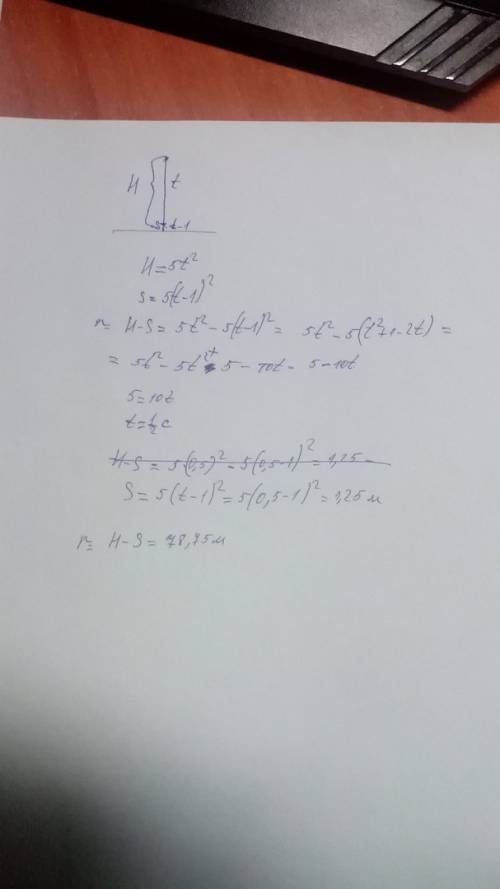 H t
t-1
H=5t²
S=5(t-1)²
r= H-S=5t²-5(t-1)²= 5t²-5(t²+1-2t)=
= 5t²-5t²+5-10t= 5-10t
5=10t
t=½c
H-S=5(0,5)²-5(0,5-1)²=1,25м
S=5(t-1)²=5(0,5-1)²=1,25м
r= H-S=78,75м